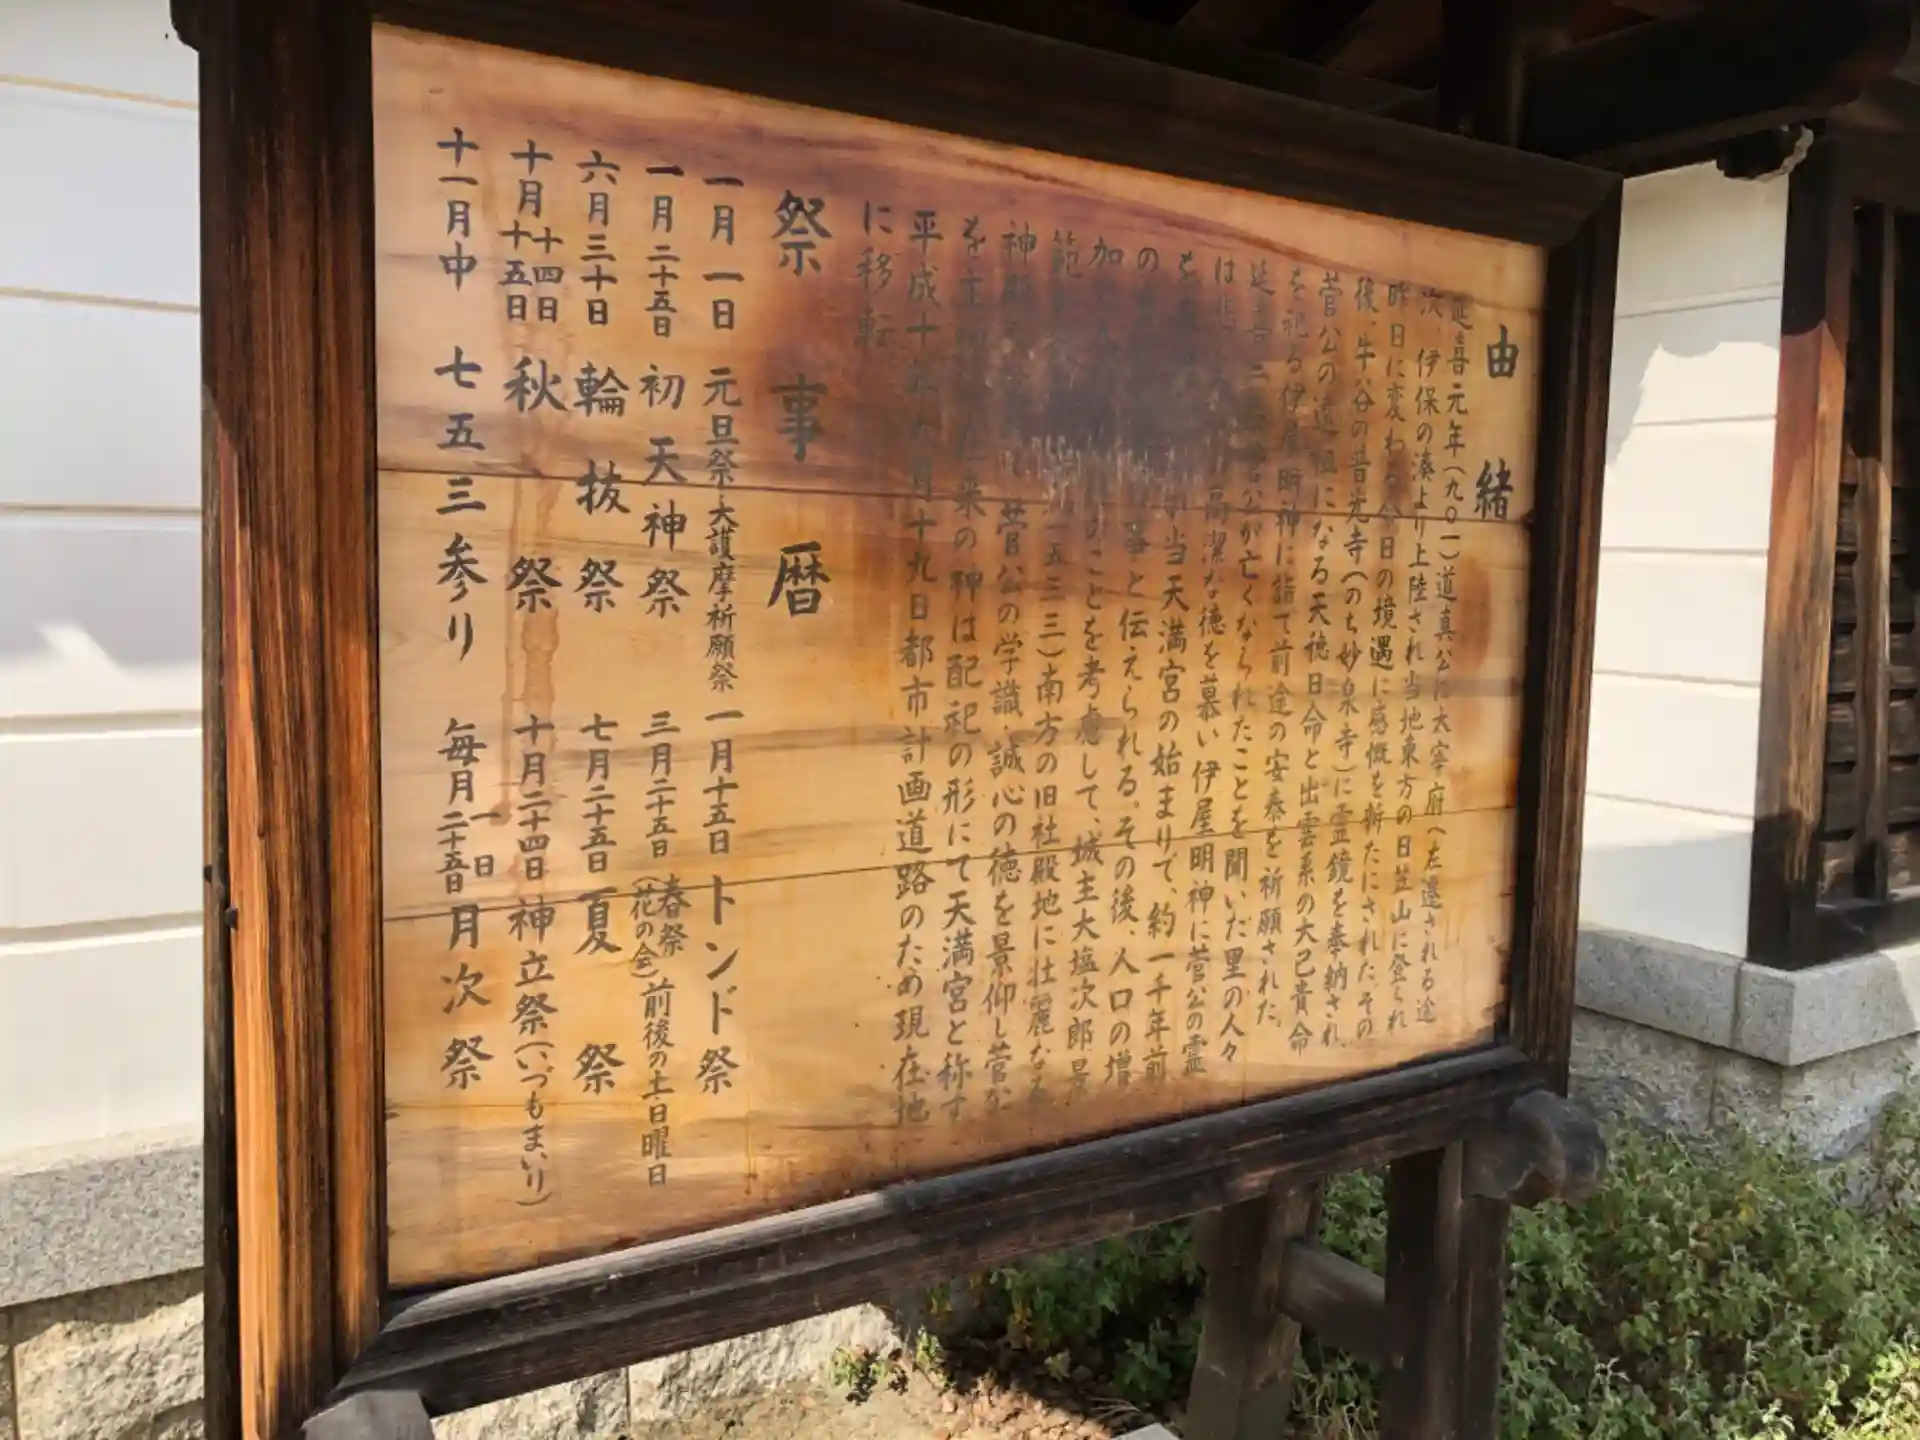 由緒
延喜元年(九〇一)道真公は太宰府へ左遷される途
次、伊保の湊より上陸され当地東方の日笠山に登られ
昨日に変わる今日の境遇に感慨を新たにされた。その
後、牛谷の普光寺(のち妙泉寺)に霊鏡を奉納され
菅公の遠祖になる天穂日命と出雲系の大己貴命
を祀る伊屋明神に詣で前途の安泰を祈願された。
延喜三 公が亡くなられたことを聞いだ里の人々
は 高潔な徳を慕い伊屋明神に菅公の霊
を 当天満宮の始まりで、約一千年前
の 事と伝えられる。その後、人口の増
加 のことを考慮して、城主大塩次郎景
範 一五三三)南方の旧社殿地に壮麗なる
神殿 菅公の学識、誠心の徳を景仰し菅公
を主 来の神は配祀の形にて天満宮と称す
平成十 月十九日都市計画道路のため現在地
に移転
祭事暦
一月一日 元旦祭・大護摩祈願祭 一月十五日 トンド祭
一月二十五日 初天神祭 三月二十五日 春祭(花の会)前後の土・日曜日
六月三十日 輪抜祭 七月二十五日 夏祭
十月十四日十五日 秋祭 十月二十四日 神立祭(いづもまいり)
十一月中 七五三参り 毎月一日二十五日 月次祭